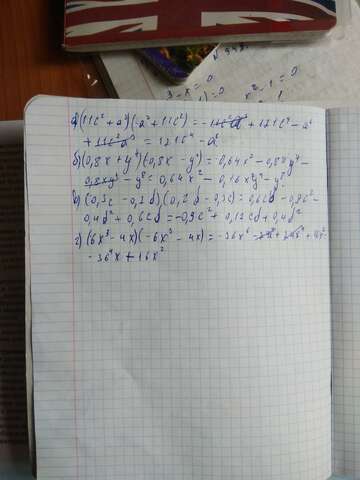 3 - x = 0
x² - 1 = 0
а) (11c² + a³)(-a³ + 11c²) = -11c²a³ + 121c⁴ - a⁶
+ 11c²a³ = 121c⁴ - a⁶
б) (0,8x + y⁴)(0,8x - y⁴) = 0,64x² - 0,8xy⁴ -
0,8xy⁴ - y⁸ = 0,64x² - 0,16x²y⁴ - y⁸
в) (0,3c - 0,2d)(0,2d - 0,3c) = 0,6cd - 0,9c² -
0,4d² + 0,6cd = -0,9c² + 0,12cd + 0,4d²
г) (6x³ - 4x)(-6x³ - 4x) = -36x⁶
- 36⁴x + 16x²